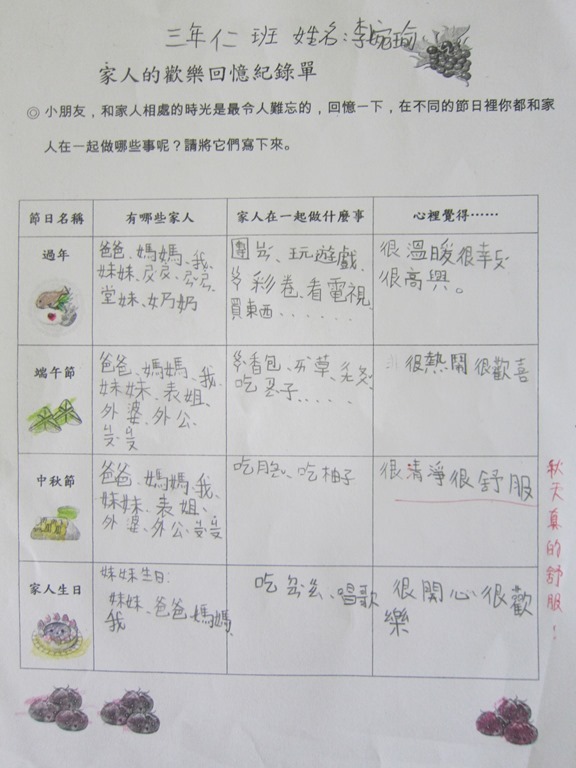 三年仁 班 姓名:李婉瑜
家人的歡樂回憶紀錄單
◎ 小朋友，和家人相處的時光是最令人難忘的，回憶一下，在不同的節日裡你都和家
人在一起做哪些事呢？請將它們寫下來。
節日名稱 有哪些家人 家人在一起做什麼事 心裡覺得……
過年
爸爸、媽媽、我、
妹妹、
堂妹、奶奶
圍ㄌㄨ、玩遊戲、
彩卷、看電視、
買東西......
很溫暖很幸ㄈㄨ
很高興。
端午節
爸爸、媽媽、我、
妹妹、表姐、
外婆、外公、
香包、
吃ㄗㄨㄥ子.....
很熱鬧很歡喜
中秋節
爸爸、媽媽、我、
妹妹、表姐、
外婆、外公、
吃月ㄅㄧㄥ、吃柚子
很清淨很舒服
秋天真的舒服！
家人生日
妹妹生日:
妹妹、爸爸、媽媽、
我
吃ㄉㄢㄍㄠ、唱歌
很開心很歡
樂